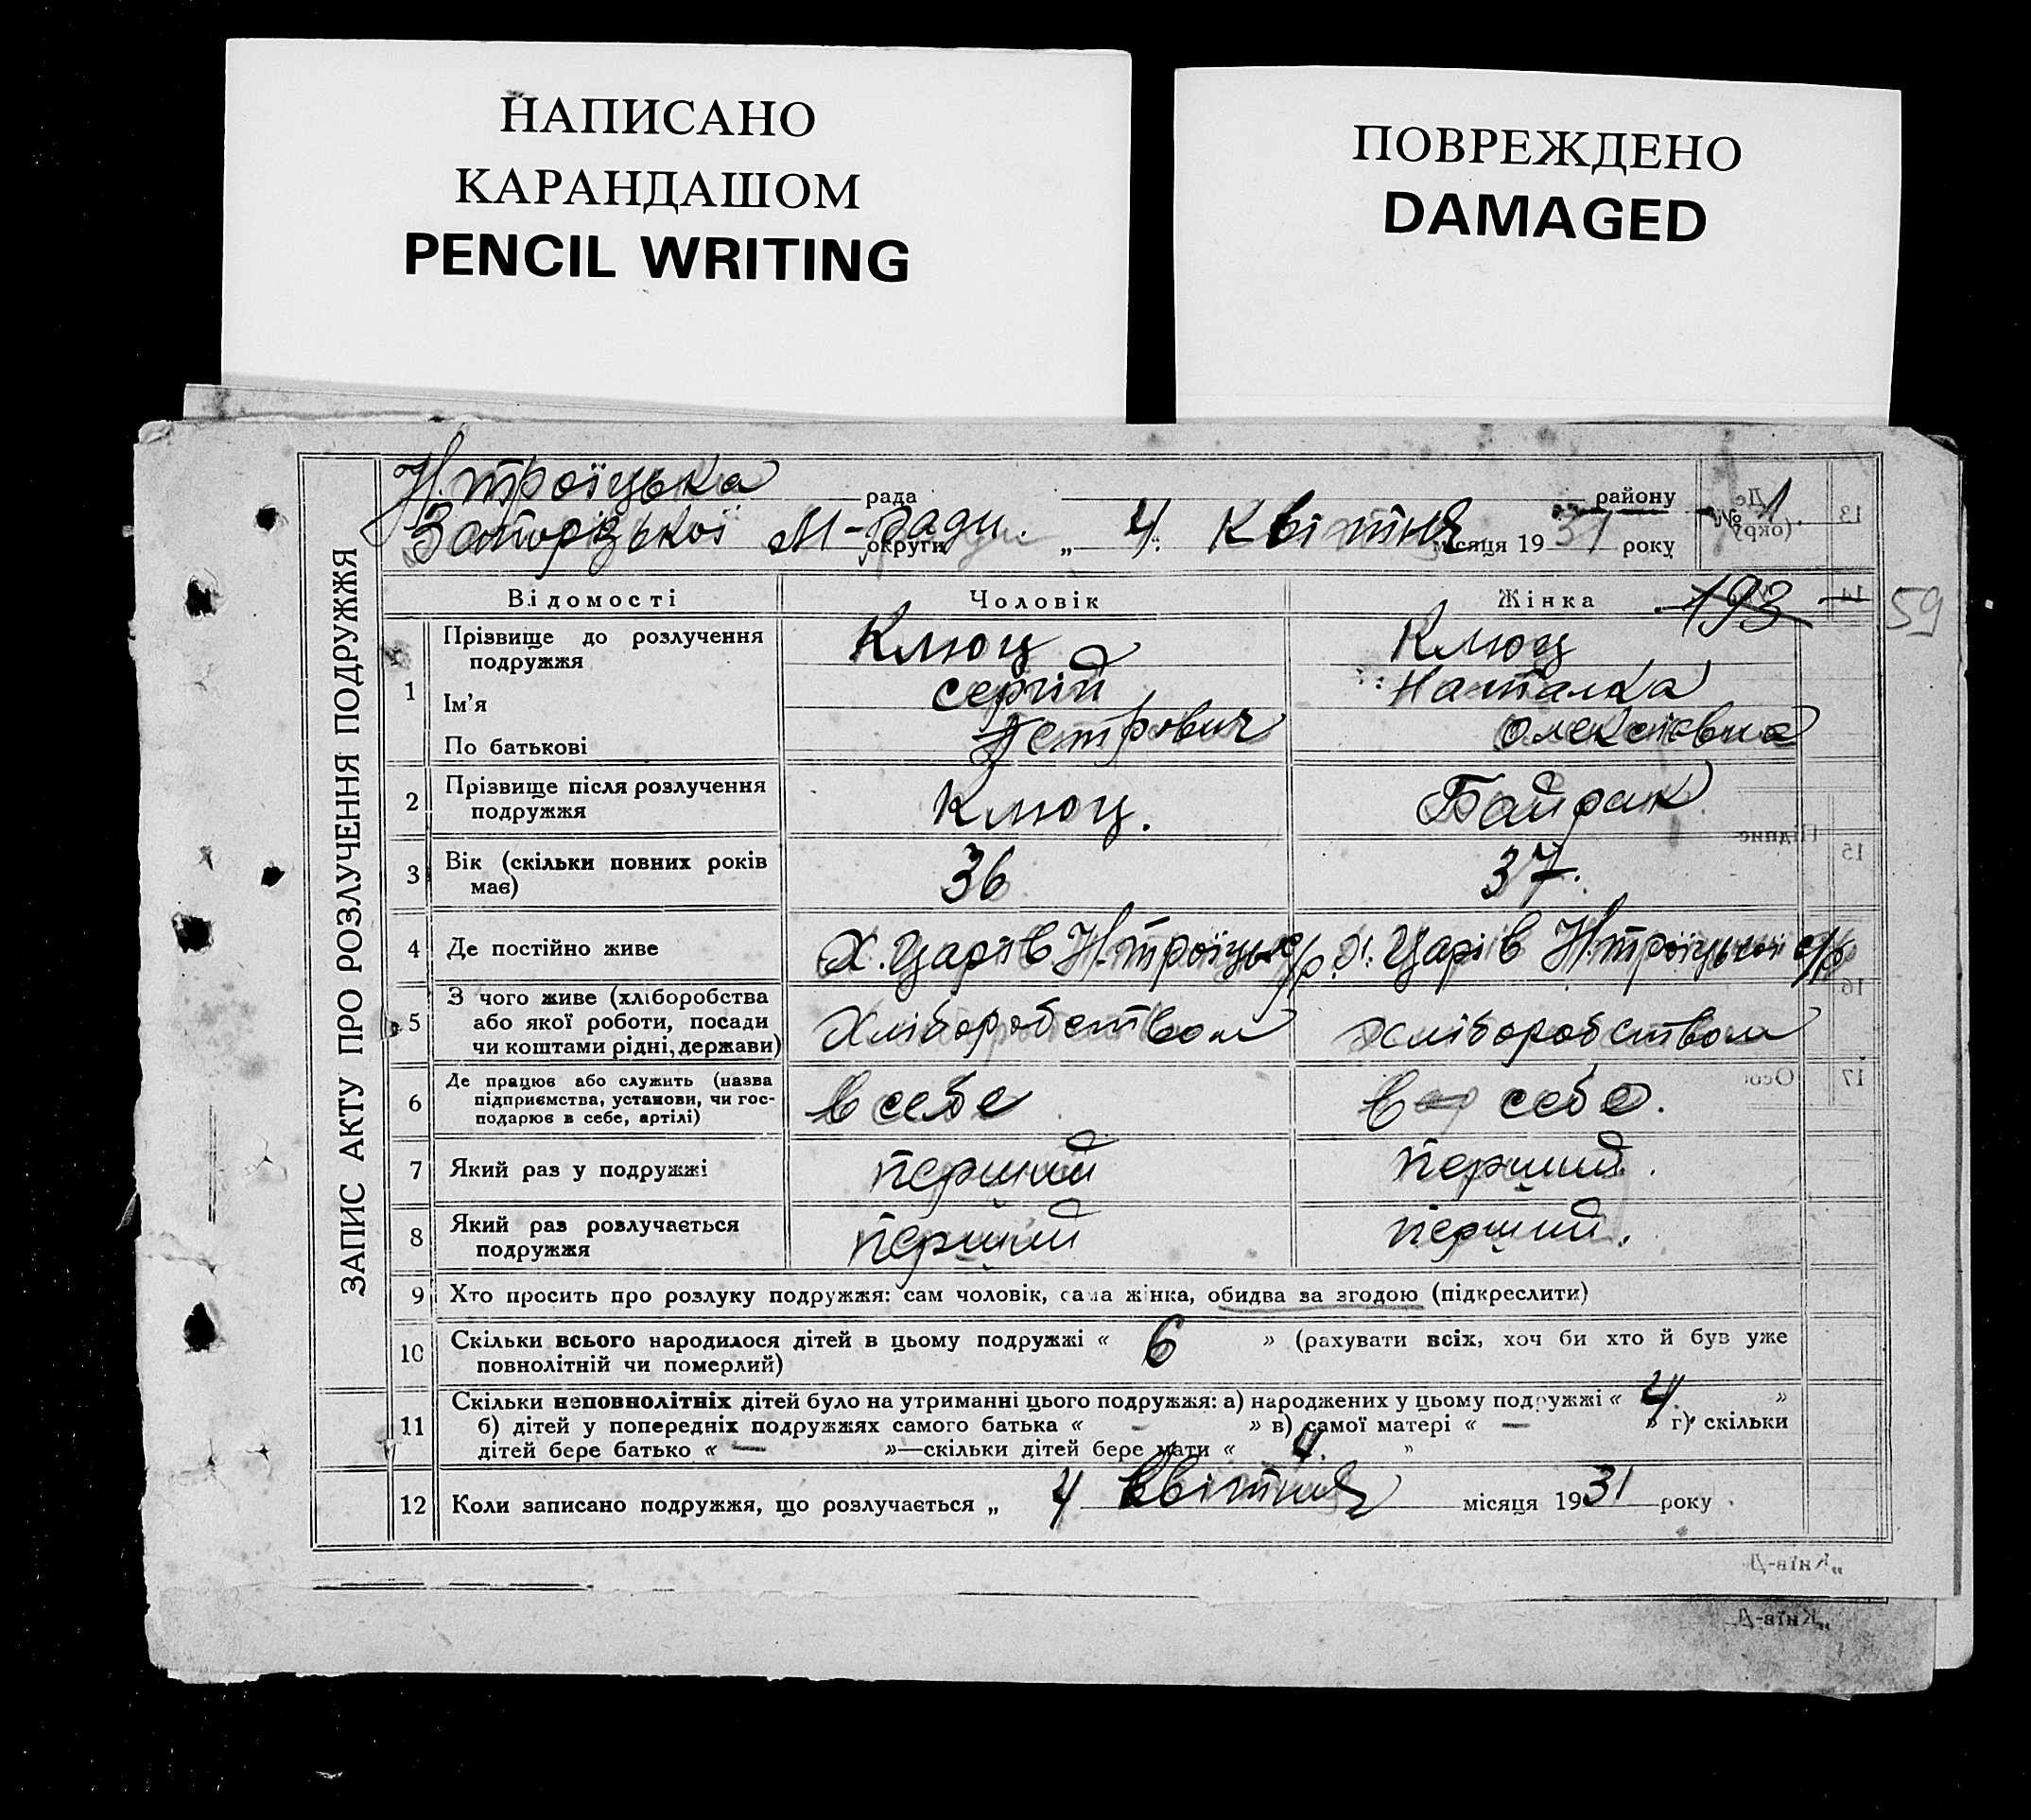 НАПИСАНО
КАРАНДАШОМ
PENCIL WRITING
ПОВРЕЖДЕНО
DAMAGED
ЗАПИС АКТУ ПРО РОЗЛУЧЕННЯ ПОДРУЖЖЯ
Н.троїцька рада району № 1.
Запорізької М-Ради. округи „ 4 " Квітня місяця 1931 року
Відомості Чоловік Жінка 193
59
1 Прізвище до розлучення подружжя Клюц Клюц
Ім'я Сергій Наталка
По батькові Петрович Олексієвна
2 Прізвище після розлучення подружжя Клюц. Байрак
3 Вік (скільки повних років має) 36 37.
4 Де постійно живе Х. Царів Н.троїцьк с/р. Х. Царів Н.троїцької с/р
5 З чого живе (хліборобства або якої роботи, посади чи коштами рідні, держави) Хліборобством Хліборобством
6 Де працює або служить (назва підприємства, установи, чи господарює в себе, артілі) в себе в себе.
7 Який раз у подружжі перший перший.
8 Який раз розлучається подружжя перший перший.
9 Хто просить про розлуку подружжя: сам чоловік, сама жінка, обидва за згодою (підкреслити)
10 Скільки всього народилося дітей в цьому подружжі « 6 » (рахувати всіх, хоч би хто й був уже
повнолітній чи померлий)
11 Скільки неповнолітніх дітей було на утриманні цього подружжя: а) народжених у цьому подружжі « 4. »
б) дітей у попередніх подружжях самого батька « - » в) самої матері « — » г) скільки
дітей бере батько « — »—скільки дітей бере мати « 4. »
12 Коли записано подружжя, що розлучається „ 4 Квітня місяця 1931 року
13
14
15 Підпис
16
17
„Київ-Д
„Київ-Д